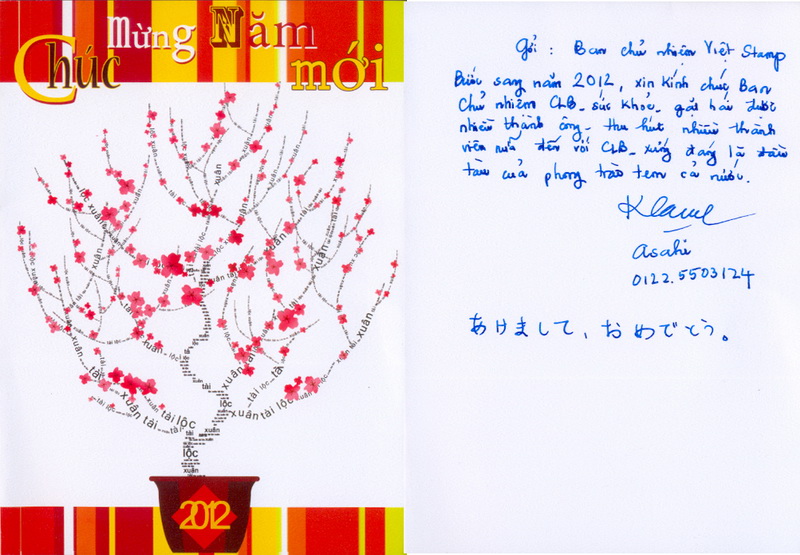 Chúc Mừng Năm mới
lộc xuân
xuân
xuân tài
xuân tài
xuân
xuân
xuân lộc
xuân tài lộc
xuân tài lộc
tài
lộc
xuân
tài
lộc
xuân
2012
Gởi : Ban chủ nhiệm Việt Stamp
Bước sang năm 2012, xin kính chúc Ban
Chủ nhiệm CLB sức khỏe, gặt hái được
nhiều thành công, thu hút nhiều thành
viên nữa đến với CLB, xứng đáng là đầu
tàu của phong trào tem cả nước.
asahi
0122.5503124
あけまして、おめでとう。